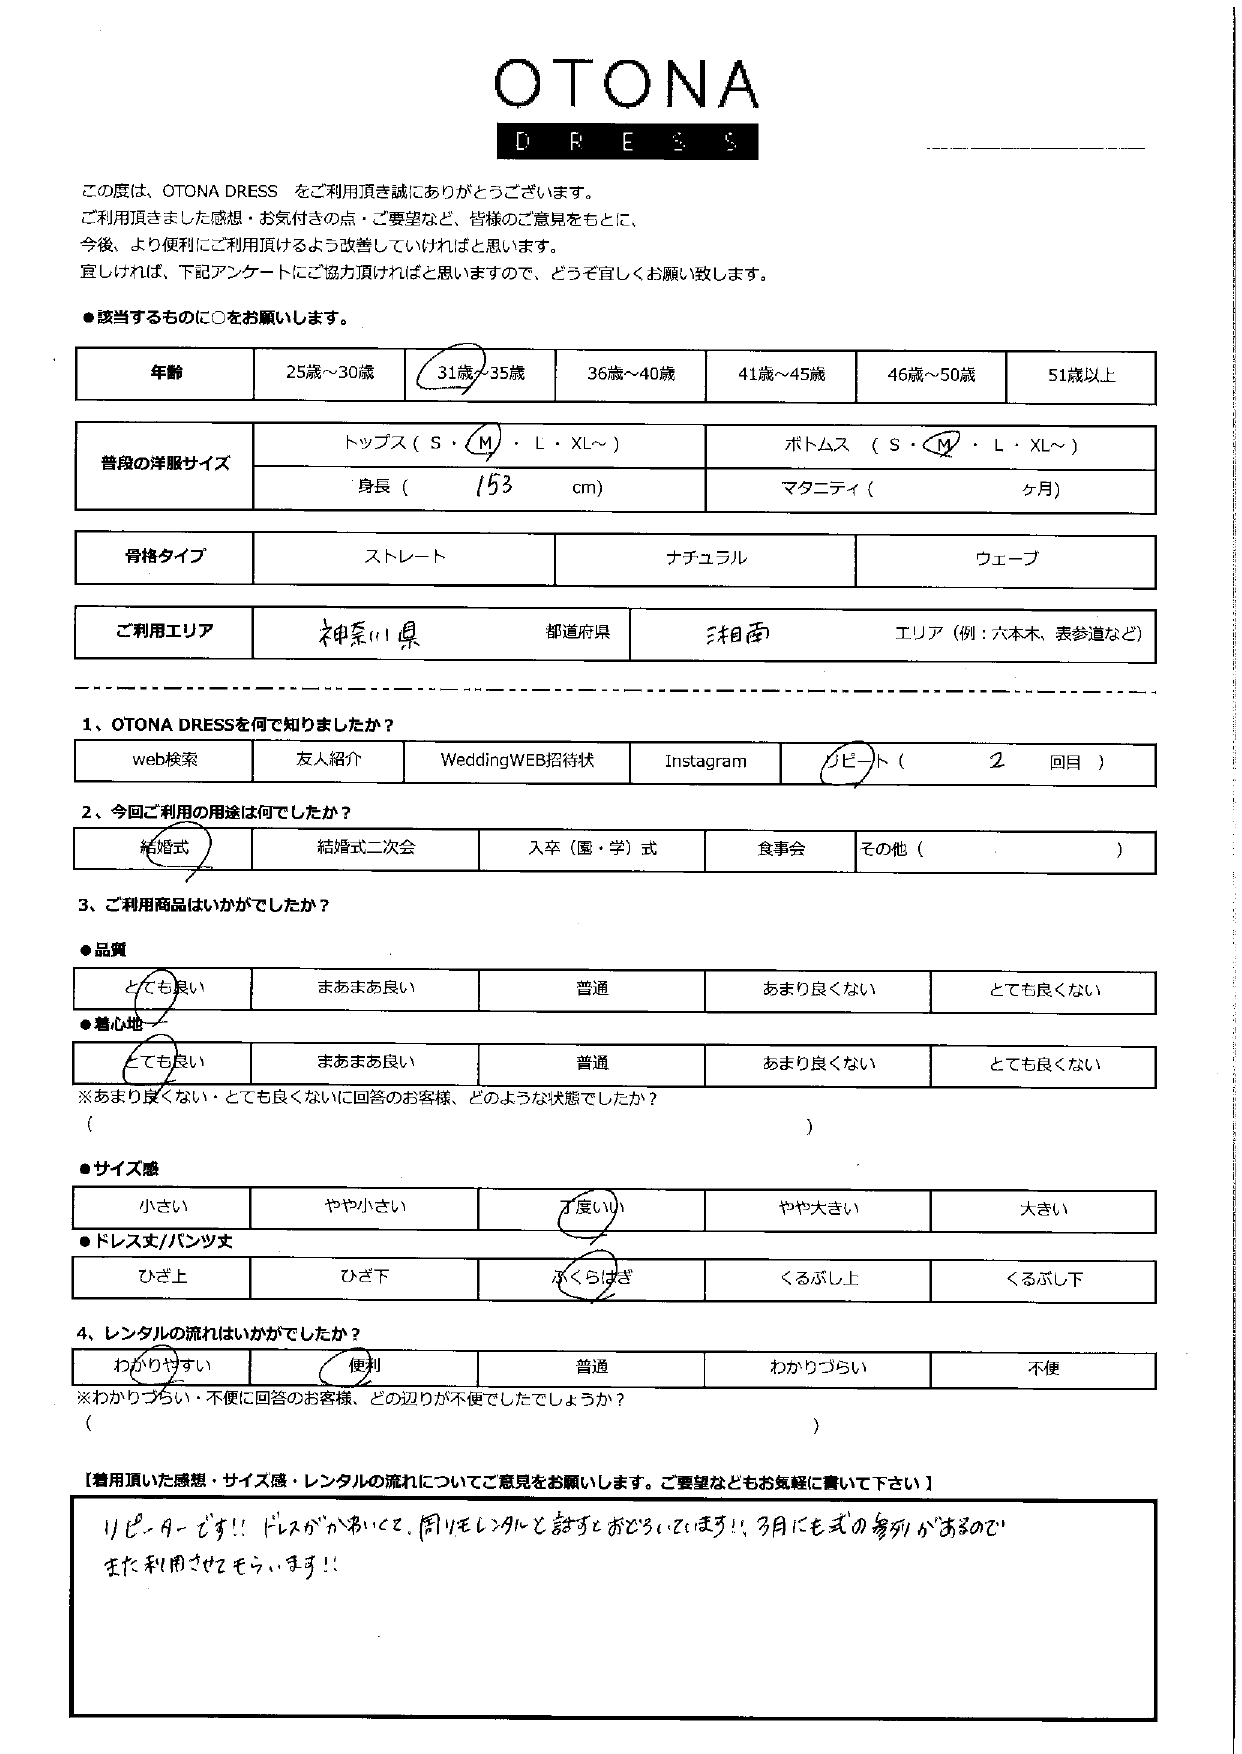 OTONA
DRESS
この度は、OTONA DRESS　をご利用頂き誠にありがとうございます。
ご利用頂きました感想・お気付きの点・ご要望など、皆様のご意見をもとに、
今後、より便利にご利用頂けるよう改善していければと思います。
宜しければ、下記アンケートにご協力頂ければと思いますので、どうぞ宜しくお願い致します。
●該当するものに○をお願いします。
年齢 25歳～30歳 31歳～35歳 36歳～40歳 41歳～45歳 46歳～50歳 51歳以上
普段の洋服サイズ トップス（ S ・ M ・ L ・ XL～ ） ボトムス （ S ・ M ・ L ・ XL～ ）
身長（ 153 cm） マタニティ（ ヶ月）
骨格タイプ ストレート ナチュラル ウェーブ
ご利用エリア 神奈川県 都道府県 湘南 エリア（例：六本木、表参道など）
1、OTONA DRESSを何で知りましたか？
web検索 友人紹介 WeddingWEB招待状 Instagram リピート（ 2 回目 ）
2、今回ご利用の用途は何でしたか？
結婚式 結婚式二次会 入卒（園・学）式 食事会 その他（ ）
3、ご利用商品はいかがでしたか？
●品質
とても良い まあまあ良い 普通 あまり良くない とても良くない
●着心地
とても良い まあまあ良い 普通 あまり良くない とても良くない
※あまり良くない・とても良くないに回答のお客様、どのような状態でしたか？
（ ）
●サイズ感
小さい やや小さい 丁度いい やや大きい 大きい
●ドレス丈/パンツ丈
ひざ上 ひざ下 ふくらはぎ くるぶし上 くるぶし下
4、レンタルの流れはいかがでしたか？
わかりやすい 便利 普通 わかりづらい 不便
※わかりづらい・不便に回答のお客様、どの辺りが不便でしたでしょうか？
（ ）
【着用頂いた感想・サイズ感・レンタルの流れについてご意見をお願いします。ご要望などもお気軽に書いて下さい】
リピーターです!! ドレスがかわいくて、周りもレンタルと話すとおどろいています!!、3月にも式の参列があるので
また利用させてもらいます!!